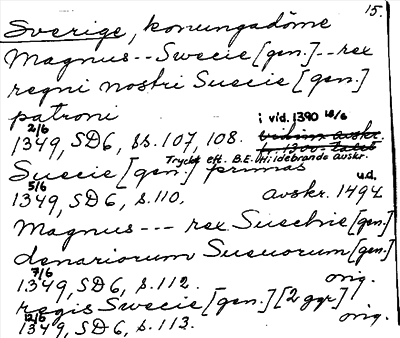 15.
Sverige, konungadöme
Magnus--Swecie [gen.]--rex
regni nostri Suecie [gen.]
patroni
2/6 i vid. 1390 18/6
1349, SD6, ss. 107, 108.
Tryckt eft. B.E. Hildebrands avskr.
Suecie [gen.] primas
5/6 u.d.
1349, SD6, s. 110. avskr. 1494
Magnus --- rex Suechie [gen]
denariorum Sueuorum [gen]
7/6 orig.
1349, SD6, s. 112.
regis Swecie [gen.] [2 ggr]
12/6 orig.
1349, SD6, s. 113.